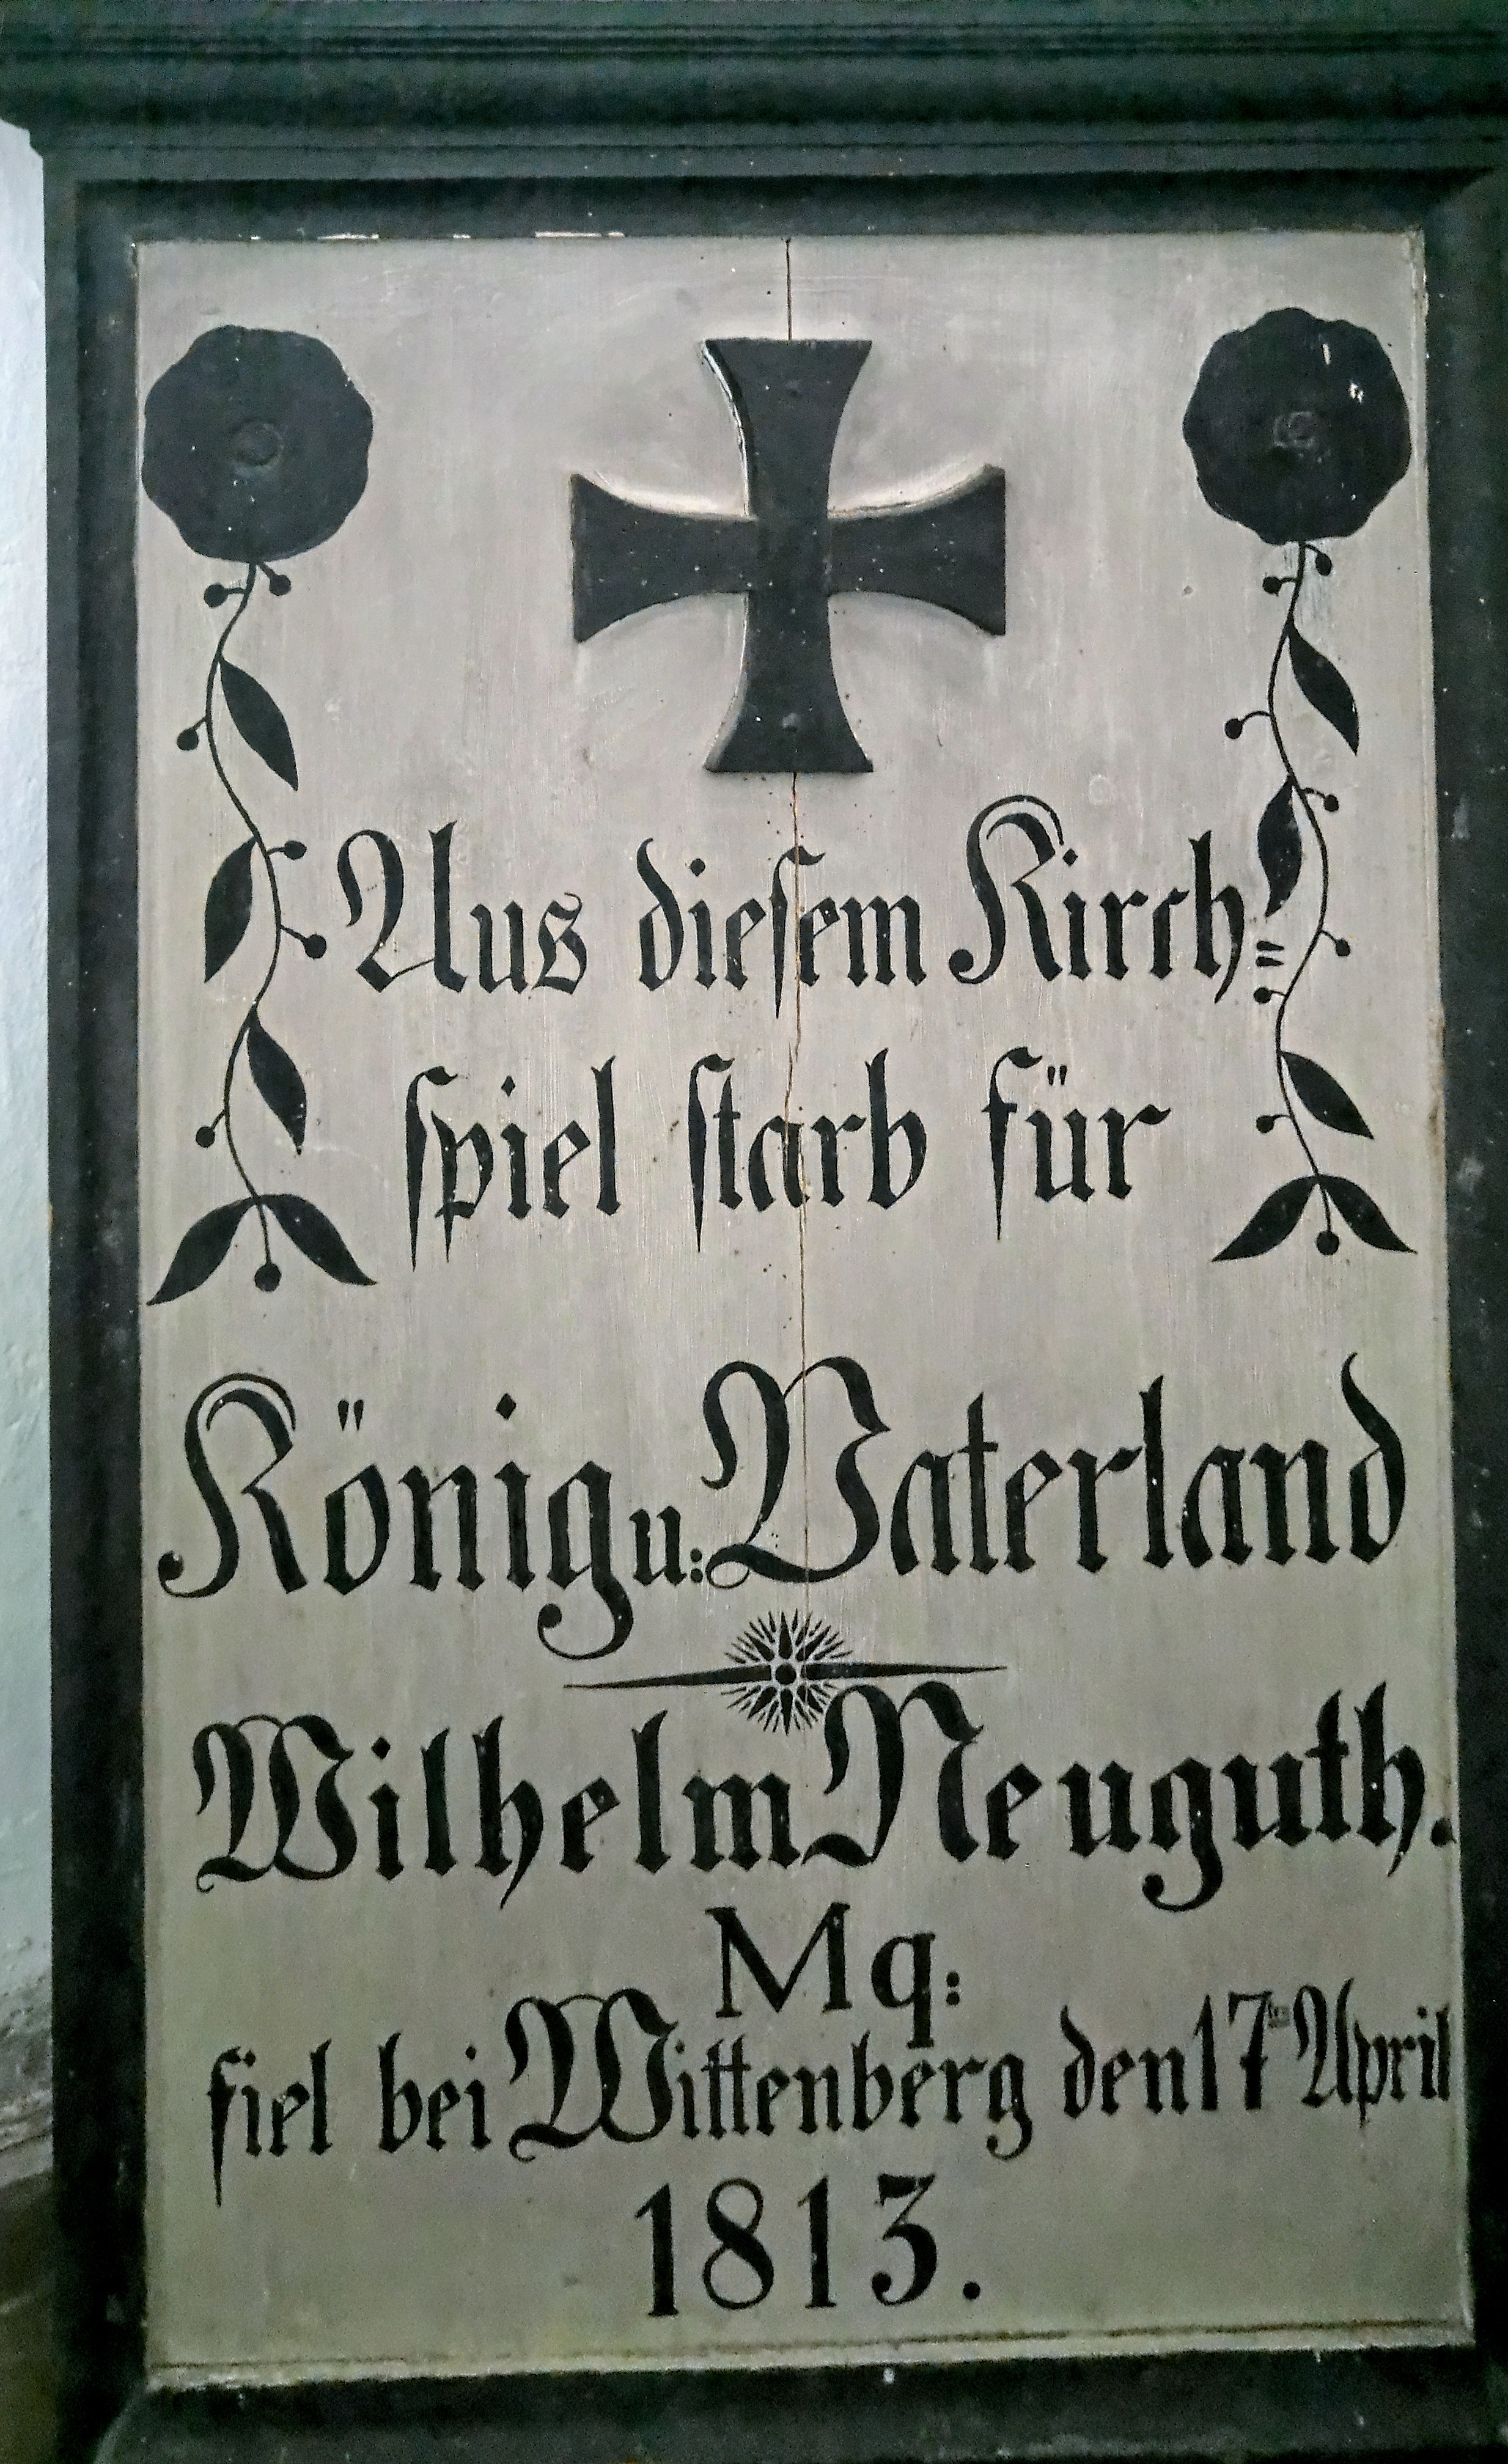 Aus dieſem Kirch⸗
ſpiel ſtarb für
König u: Vaterland
Wilhelm Neuguth.
Mq:
fiel bei Wittenberg den 17ten April
1813.